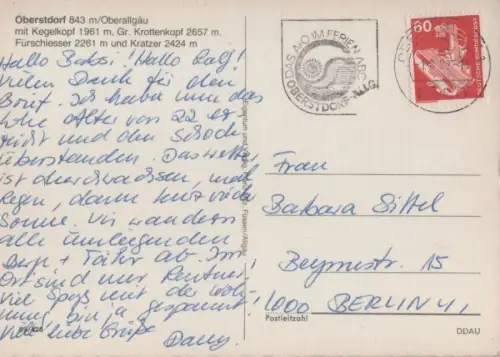 Oberstdorf 843 m/Oberallgäu
mit Kegelkopf 1961 m, Gr. Krottenkopf 2657 m.
Fürschiesser 2261 m und Kratzer 2424 m
Hallo Babsi! Hallo Ralf!
Vielen Dank für den
Brief. Ich habe nun das
hohe Alter von 22 er-
reicht und den Schock
überstanden. Das Wetter
ist durchwachsen, mal
Regen, dann kurz
Sonne. Wir wandern
alle umliegenden
Berge + Täler ab. Im
Ort sind nur Rentner.
Viel Spaß mit der Woh-
nung, bin ja gespannt!
Viele liebe Grüße
Dany
DAS A+O IM FERIEN-ABC
OBERSTDORF·ALLG.
60
DEUTSCHE BUNDESPOST
Frau
Barbara Sittel
15
1000 BERLIN 41
Postleitzahl
DDAU